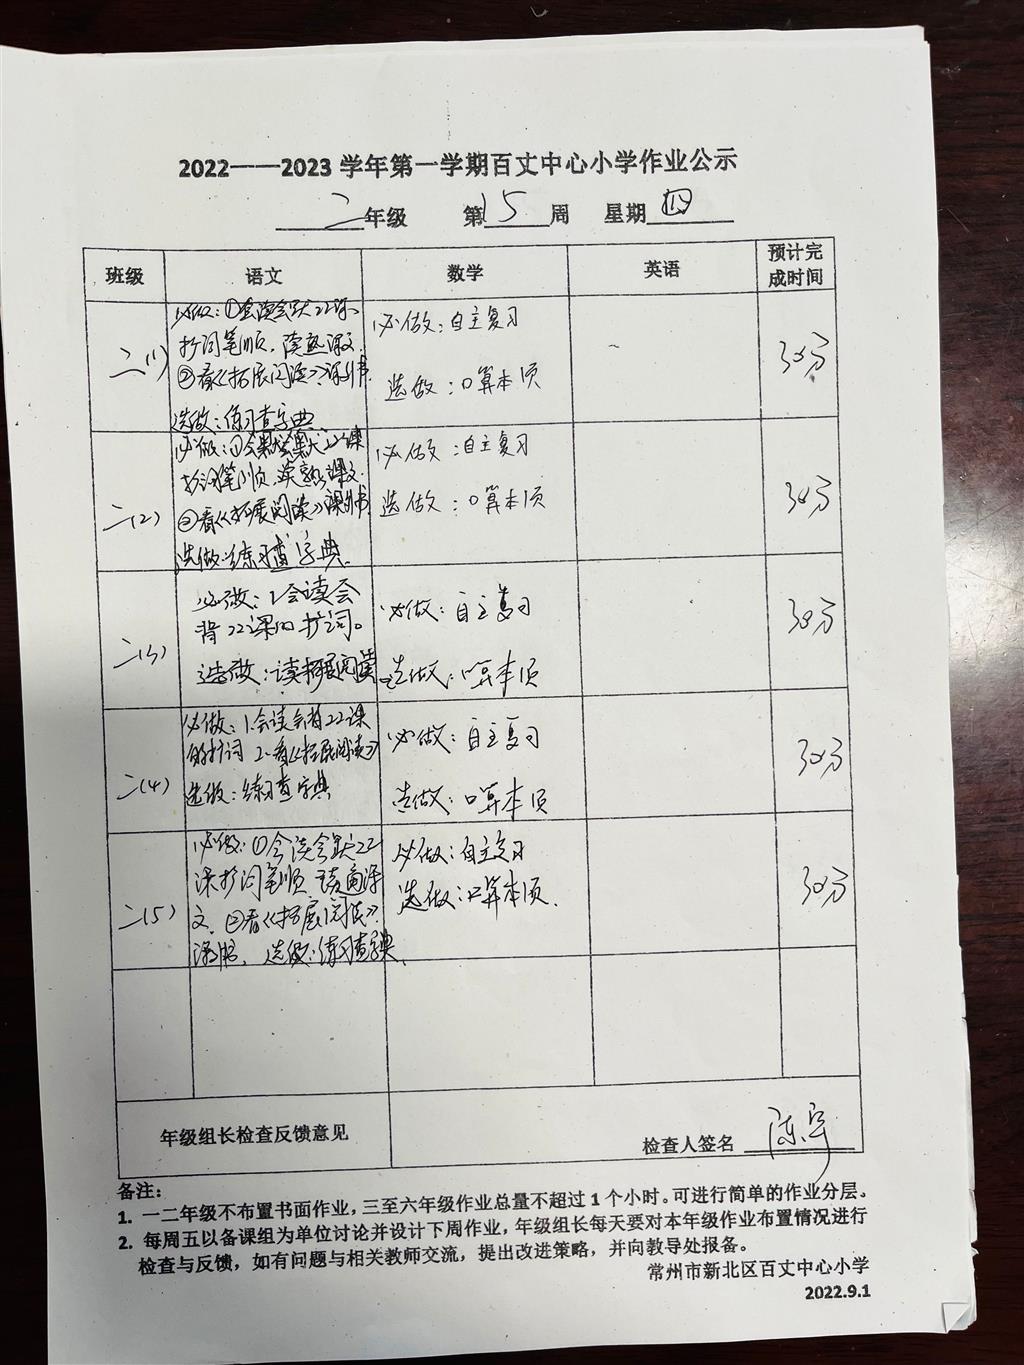 2022——2023 学年第一学期百丈中心小学作业公示
二年级 第15周 星期四
班级 语文 数学 英语 预计完
成时间
二(1)
必做：①会读会默22课
扩词笔顺，读熟课文
②看《拓展阅读》课外书
选做：练习查字典
必做：自主复习
选做：口算本1页
30分
二(2)
必做：①会默22课
扩词笔顺，读熟课文
②看《拓展阅读》课外书
选做：练习查字典.
必做：自主复习
选做：口算本1页
30分
二(3)
必做：1.会读会
背22课的扩词。
选做：读拓展阅读
必做：自主复习
选做：口算本1页
30分
二(4)
必做：1.会读会背22课
的扩词 2.看《拓展阅读》
选做：练习查字典
必做：自主复习
选做：口算本1页
30分
二(5)
必做：①会读会默22
课扩词笔顺 读通课
文，②看《拓展阅读》
选做：练习查字典.
必做：自主复习
选做：口算本1页.
30分
年级组长检查反馈意见
检查人签名
备注：
1. 一二年级不布置书面作业，三至六年级作业总量不超过 1 个小时。可进行简单的作业分层。
2. 每周五以备课组为单位讨论并设计下周作业，年级组长每天要对本年级作业布置情况进行
检查与反馈，如有问题与相关教师交流，提出改进策略，并向教导处报备。
常州市新北区百丈中心小学
2022.9.1